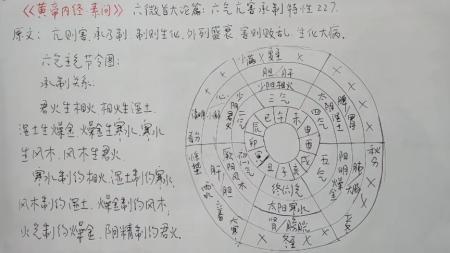 《《黄帝内经·素问》六微旨大论篇:六气亢害承制特性227.
原文:亢则害,承乃制 制则生化,外列盛衰 害则败乱,生化大病.
六气主气节令图:
承制关系:
君火生相火 相火生湿土.
湿土生燥金 燥金生寒水,寒水
生风木.风木生君火
寒水制约相火,湿土制约寒水.
风木制约湿土.燥金制约风木;
火气制约燥金.阴精制约君火.
胆/肝
少阳相火
三气
巳 午 未
辰 申
卯 酉
寅 戌
丑 子 亥
四气
太阴湿土
五气
阳明燥金
肺 大肠
秋分
终之气
太阳寒水
肾/膀胱
冬至
大寒
厥阴风木
肝
胆
少阴君火
春分